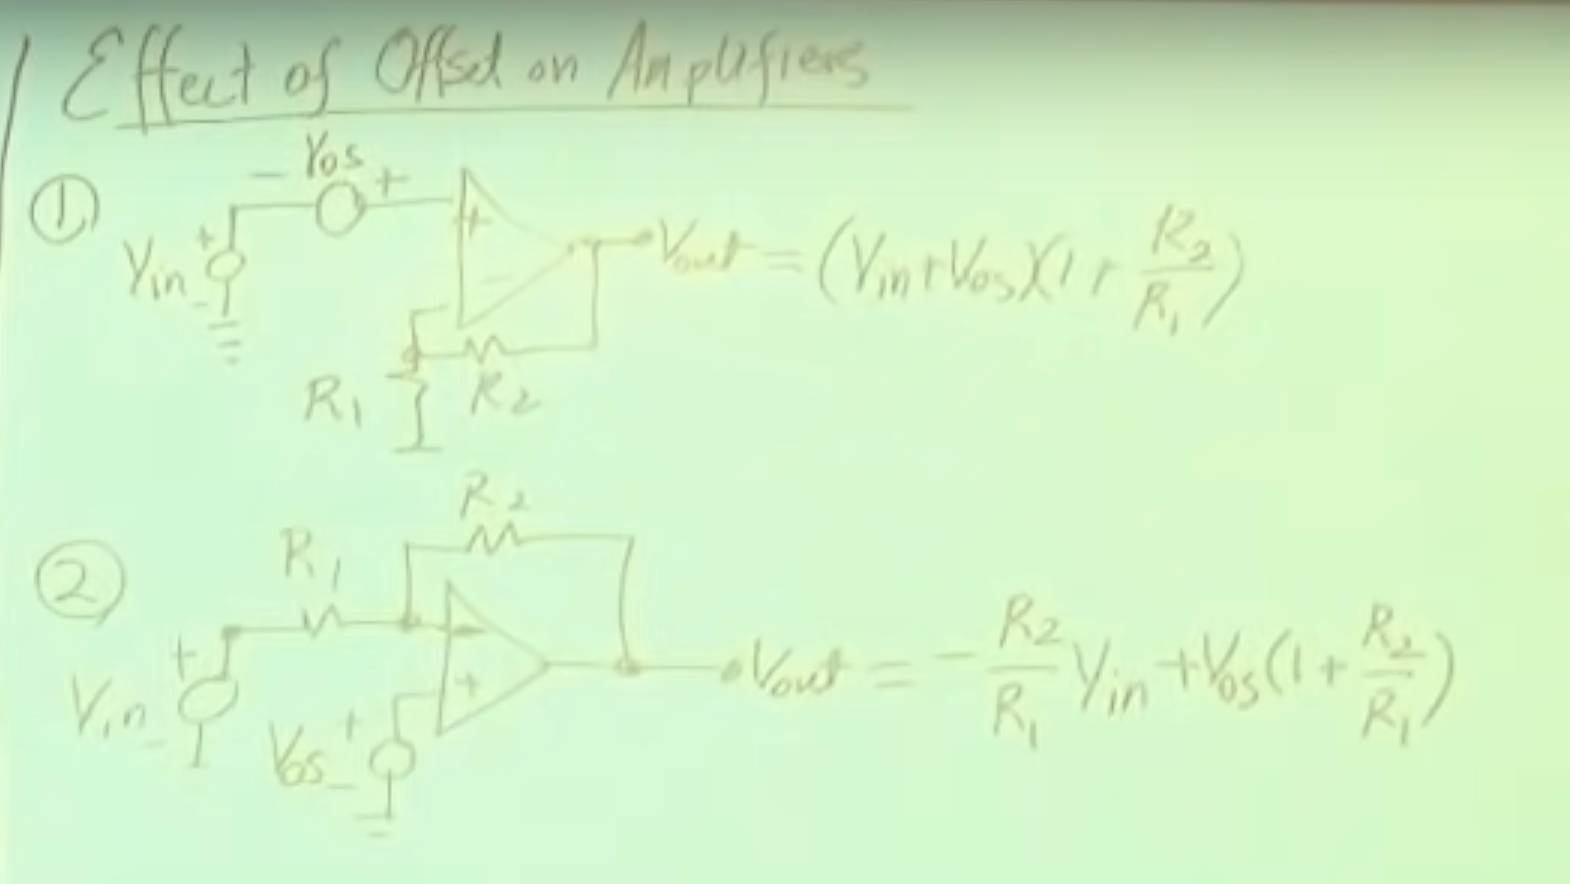 Effect of Offset on Amplifiers
① - Vos +
+ Vin - + - Vout = (Vin+Vos)(1+ R2/R1)
R1 R2
R2
② R1
+ Vin - - + Vout = - R2/R1 Vin + Vos(1 + R2/R1)
+ Vos -